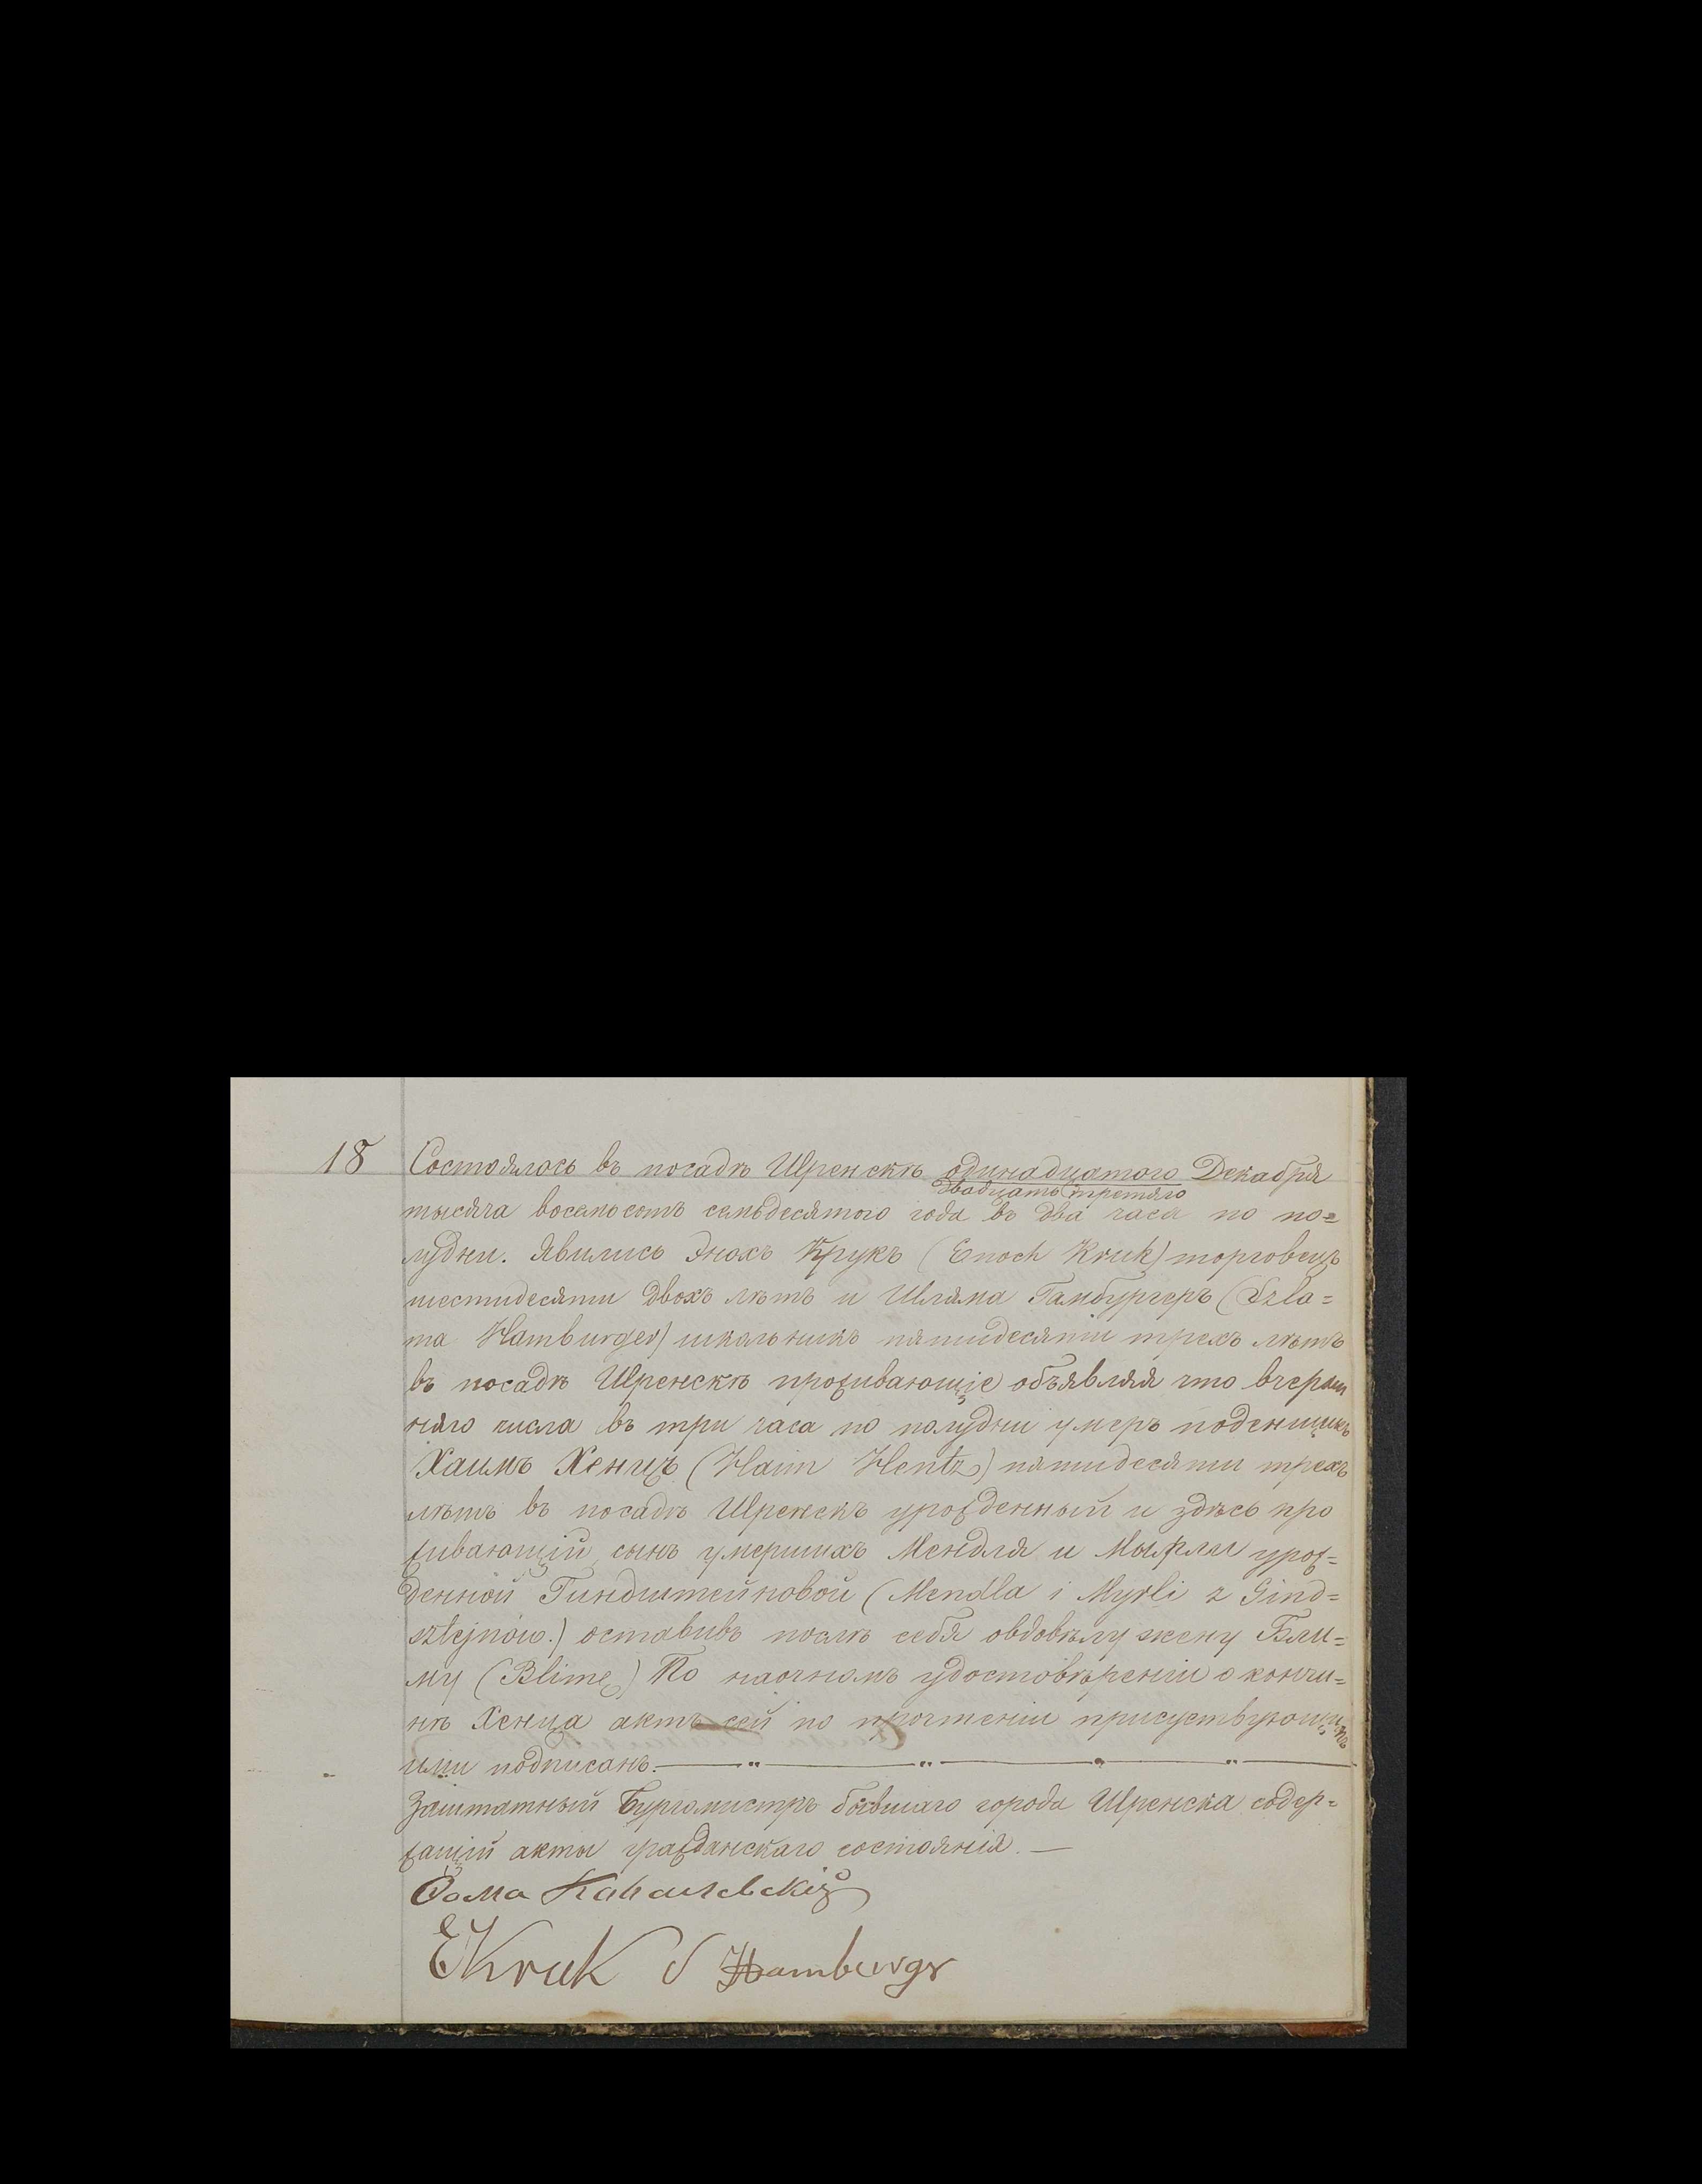 18 Состоялось въ посадѣ Шренскѣ одинадцатого Декабря
двадцать третяго
тысяча восемсотъ семьдесятого года въ два часа по по=
лудни. Явились Энохъ Крукъ (Enoch Kruk) торговецъ
шестидесяти двохъ лѣтъ и Шляма Гамбургеръ (Szla=
ma Hamburger) школьникъ пятидесяти трехъ лѣтъ
въ посадѣ Шренскѣ проживающіе объявляя что вчераш
няго числа въ три часа по полудни умеръ поденщикъ
Хаимъ Хенцъ (Haim Hentz) пятидесяти трехъ
лѣтъ въ посадѣ Шренскъ урожденный и здѣсь про
живающій сынъ умершихъ Мендля и Мырли урож=
денной Гиндштейновой (Mendla i Myrli z Gind=
sztejnów.) оставивъ послѣ себя овдовѣлу жену Бли=
му (Blime) По наочномъ удостовѣреніи о кончи=
нѣ Хенца актъ сей по прочтеніи присуствующимъ
ими подписанъ.
Заштатный Бургомистръ бывшаго города Шренска содер=
жащій акты гражданскаго состоянія. —
Фома
EKruk S Hamburgr